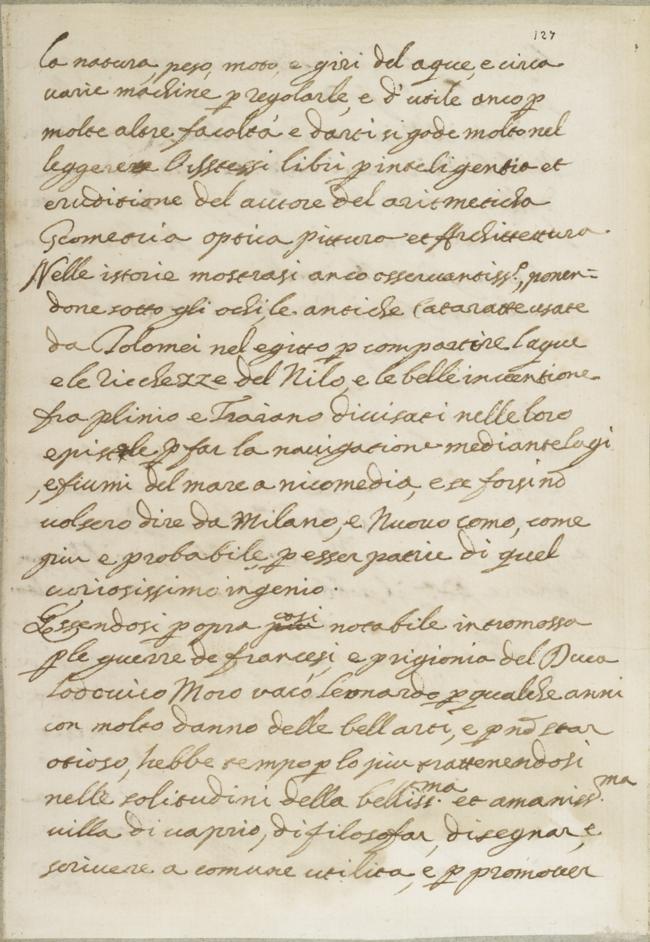 127
la natura, peso, moto, e giri del aque, e circa
varie machine p regolarle, e d'utile anco p
molte altre facoltà e d'arti si gode molto nel
leggere l'istessi libri p inteligentia et
eruditione del autore del aritmeticha
Geometria optica pittura et Architettura.
Nelle istorie mostrasi anco osservantiss.o, ponen=
done sotto gli ochi, le antiche Cataratte usate
da Tolomei nel egitto p compartire l aque
e le ricchezze del Nilo, e le belle inventione
fra plinio e Traiano divisati nelle loro
epistole p far la navigatione mediante lagi
, e fiumi del mare a nicomedia, e se forsi nō
volsero dire da Milano, e Nuovo Como, come
piu e probabile p esser patrie di quel
curiosissimo ingenio.
Essendosi p opra così notabile intromossa
p le guerre de francesi, e prigionia del Duca
Lodovico Moro vacò Leonardo p qualche anni
con molto danno delle bell arti, e p nō star
otioso, hebbe tempo p lo piu trattenendosi
nelle solitudini della belliss.ma et amaniss.ma
villa di vaprio, di filosofar, disegnar, e
scrivere a comune utilita, e p promover